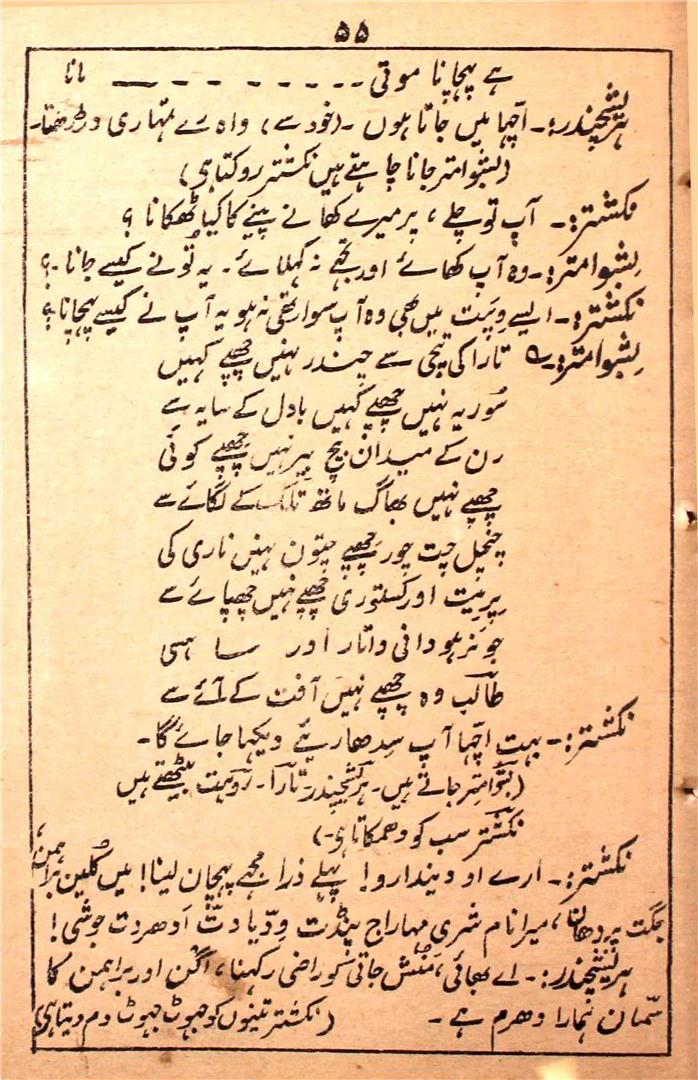 ۵۵
ہے پہچاننا موتی ـ ـ ـ ـ ـ ـ ـ ـ ـ ـ مانا
ہریشچندر:۔ اچھا میں جاتا ہوں۔ (خود سے) واہ رے تمہاری
(بشوامتر جانا چاہتے ہیں نکشتر روکتا ہی)
نکشتر:۔ آپ تو چلے، پر میرے کھانے پینے کا کیا ٹھکانا؟
بشوامتر:۔ وہ آپ کھائے اور تجھے نہ کہلائے۔ یہ تُو نے کیسے جانا۔؟
نکشتر:۔ ایسے وِپَت میں بھی وہ آپ سوارتھی نہ ہو یہ آپ نے کیسے پہچانا؟
بشوامتر:۔ تارا کی تیج سے چندر نہیں چھپے کہیں
سُوریہ نہیں چھپے کہیں بادل کے سایہ سے
رن کے میدان بیچ بیر نہیں چھپے کوئی
چھپے نہیں بھاگ ماتھ تلک کے لگائے سے
چنچل چت چور چھپے چتون نہیں ناری کی
پریت اور کستوری چھپے نہیں چھپائے سے
جو نر ہو دانی داتار اور ساہسی
طالب وہ چھپے نہیں آفت کے آئے سے
نکشتر:۔ بہت اچھا آپ سِدھاریئے دیکھا جائے گا۔
(بشوامتر جاتے ہیں۔ ہریشچندر۔ تارا۔ روہت بیٹھتے ہیں
نکشتر سب کو دھمکاتا ہی۔)
نکشتر:۔ ارے او دیندارو! پہلے ذرا مجھے پہچان لینا! میں کُلین براہمن،
جگت پردھان، میرا نام شری مہاراج پنڈت وِدّیا دتّ اَدھر دت جوشی!
ہریشچندر:۔ اے بھائی، مَنُش جاتی کو راضی رکھنا، اگن اور براہمن کا
سمّان ہمارا دھرم ہے۔ (نکشتر تینوں کو جھوٹ جھوٹ دم دیتا ہی)